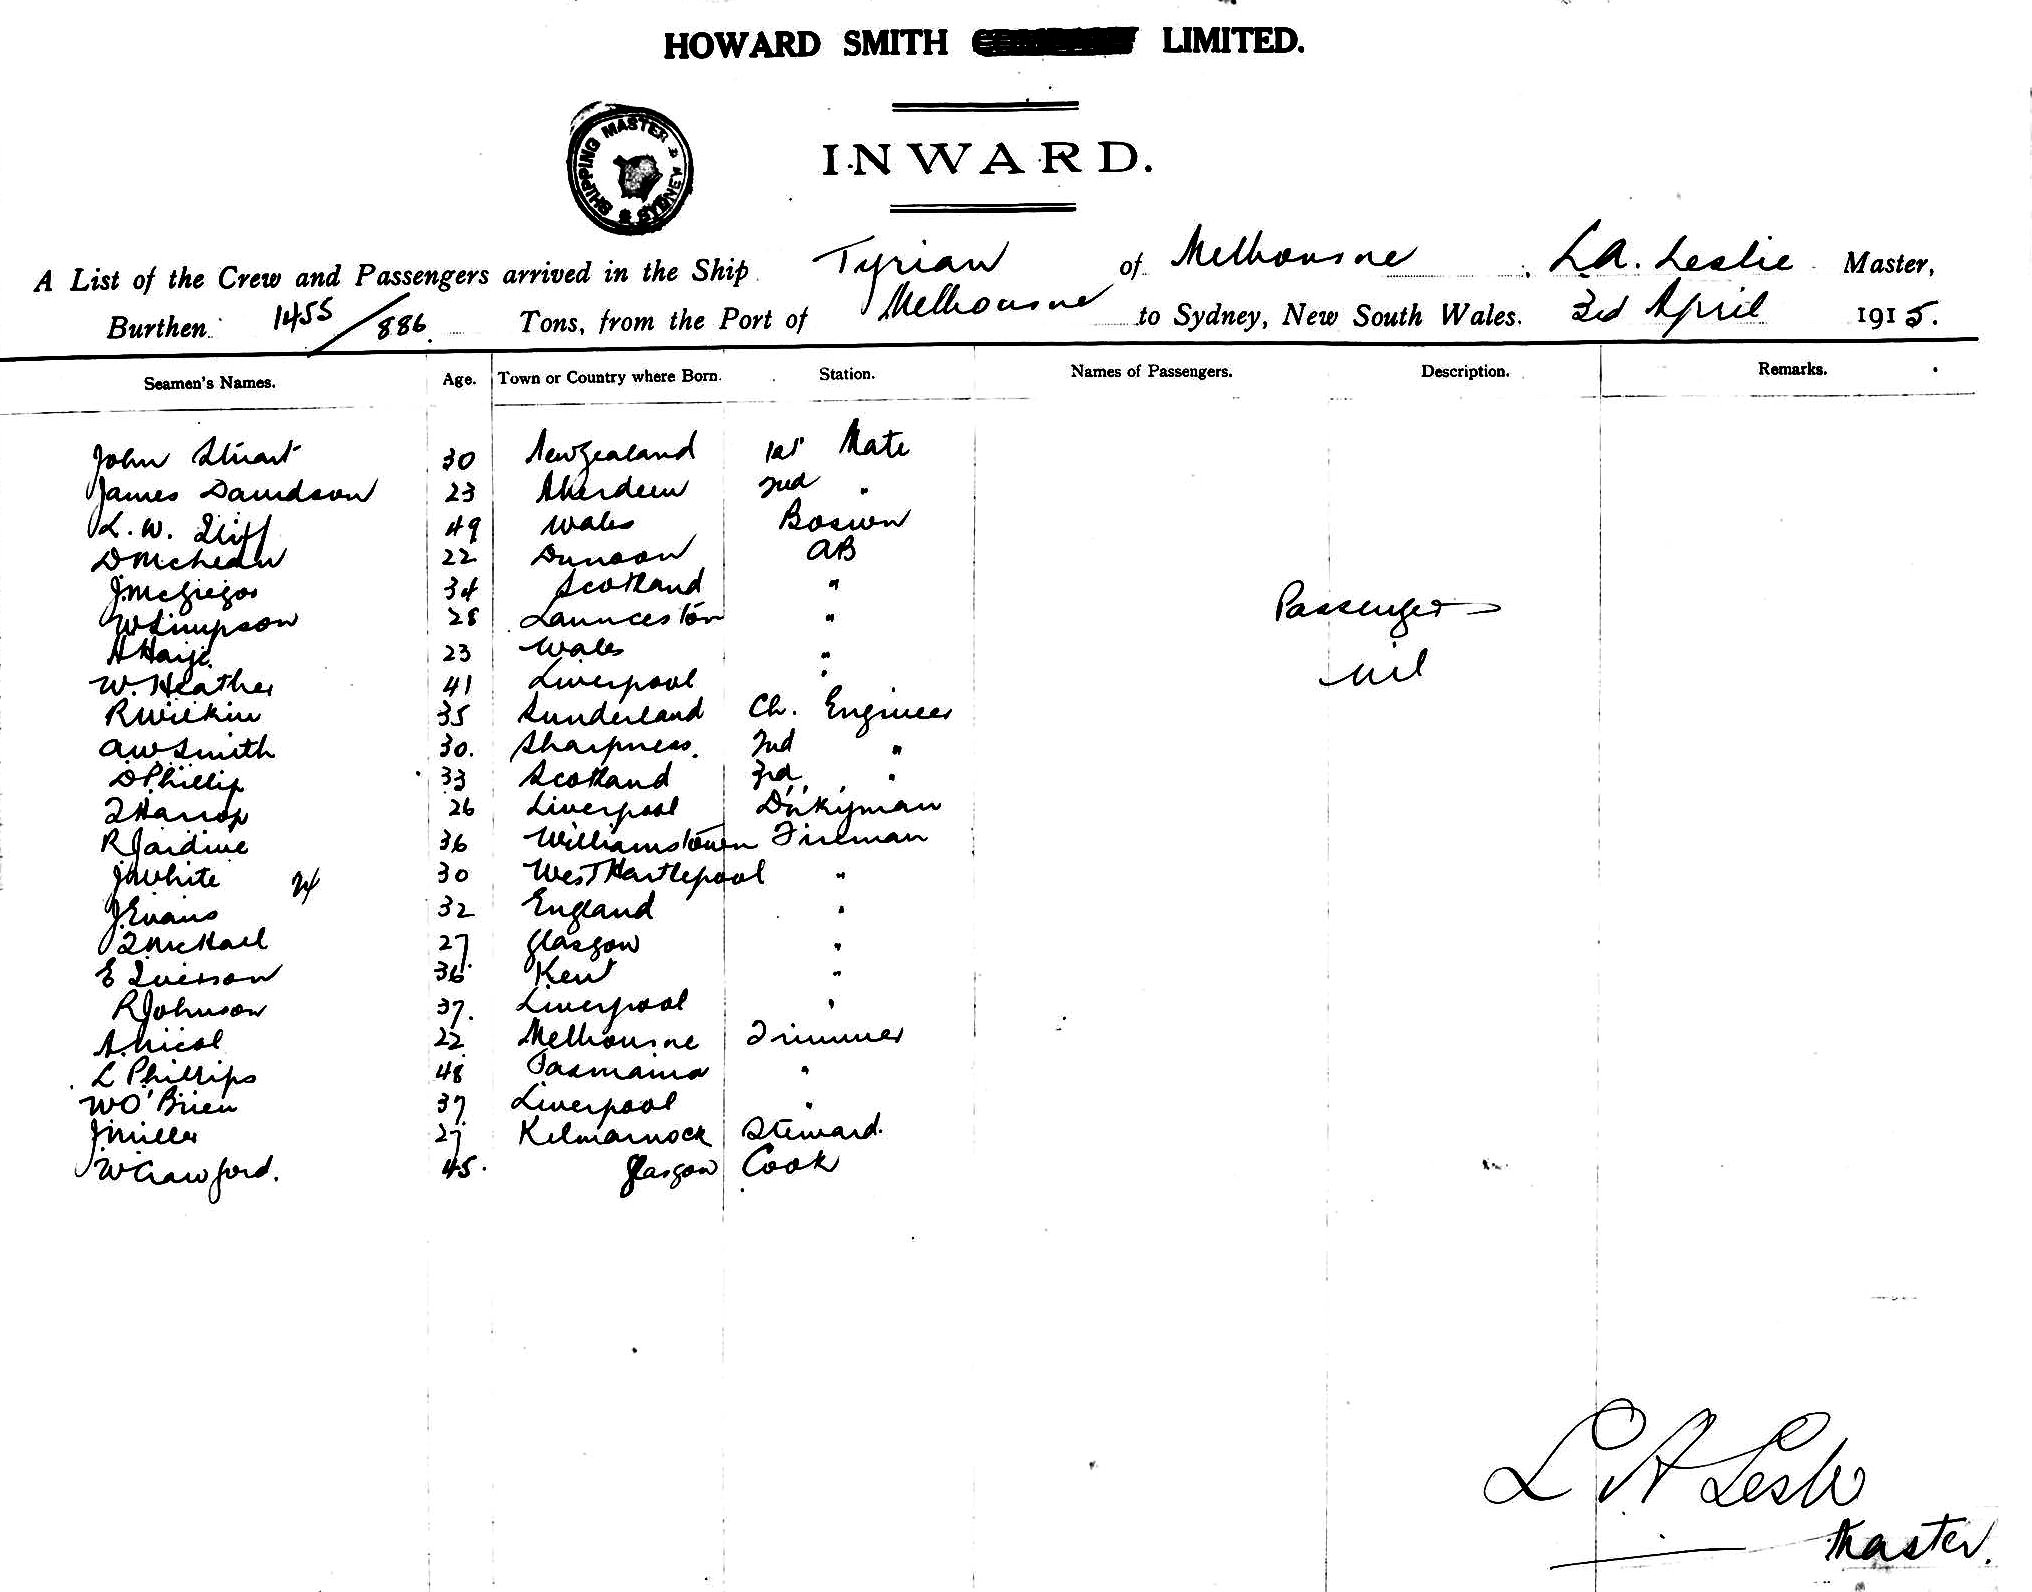 HOWARD SMITH LIMITED.
SHIPPING MASTER SYDNEY
INWARD.
A List of the Crew and Passengers arrived in the Ship Tyrian of Melbourne, L.A. Leslie Master,
Burthen 1455/886 Tons, from the Port of Melbourne to Sydney, New South Wales. 3rd April 1915.
Seamen's Names. Age. Town or Country where Born. Station. Names of Passengers. Description. Remarks.
John Stuart 30 New Zealand 1st Mate
James Davidson 23 Aberdeen 2nd "
L. W. Iliff 49 Wales Boswn
D McLean 22 Dunoon AB
J. McGregor 34 Scotland "
Passengers
W Simpson 28 Launceston "
A 23 Wales "
nil
W. Heather 41 Liverpool "
R Wilkin 35 Sunderland Ch. Engineer
A W Smith 30. Sharpness. 2nd "
D Phillip 33 Scotland 3rd "
Harrop 26 Liverpool Dnkyman
R Jardine 36 Williamstown Fireman
J White 30 West Hartlepool "
J. Evans 32 England "
27 Glasgow "
E Iverson 36 Kent "
R Johnson 37. Liverpool "
A. Nicol 22 Melbourne Trimmer
L Phillips 48 Tasmania "
W O'Brien 37 Liverpool "
J Miller 27 Kilmarnock Steward.
W Crawford. 45. Glasgow Cook
L A Leslie
Master.